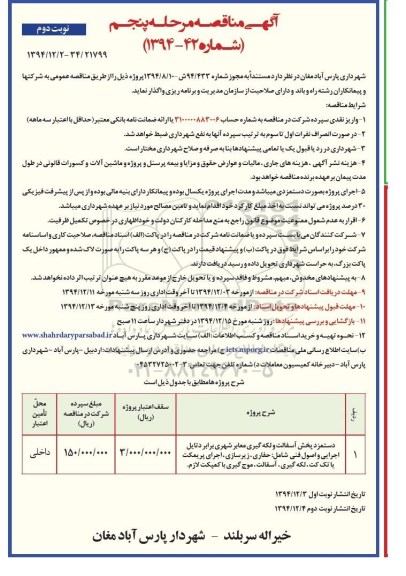 نوبت دوم
آگهی مناقصه مرحله پنجم
(شماره ۴۲-۱۳۹۴)
۱۳۹۴/۱۲/۲-۳۴/۲۱۷۹۹
شهرداری پارس آباد مغان در نظر دارد مستنداً به مجوز شماره ۹۴/۴۳۳ش-۱۳۹۴/۸/۱۰ پروژه ذیل را از طریق مناقصه عمومی به شرکتها
و پیمانکاران رشته راه و باند و دارای صلاحیت از سازمان مدیریت و برنامه ریزی واگذار نماید.
شرایط مناقصه:
۱- واریز نقدی سپرده شرکت در مناقصه به شماره حساب ۳۱۰۰۰۰۰۸۸۳۰۰۶ یا ارائه ضمانت نامه بانکی معتبر (حداقل با اعتبار سه ماهه)
۲- در صورت انصراف نفرات اول تا سوم به ترتیب سپرده آنها به نفع شهرداری ضبط خواهد شد.
۳- شهرداری در رد یا قبول یک یا تمامی پیشنهادها بنا به صرفه و صلاح شهرداری مختار است.
۴- هزینه نشر آگهی، هزینه های جاری، مالیات و عوارض حقوق و مزایا و بیمه پرسنل و پروژه و ماشین آلات و کسورات قانونی در طول
مدت پیمان بر عهده برنده مناقصه خواهد بود.
۵- اجرای پروژه بصورت دستمزدی میباشد و مدت اجرای پروژه یکسال بوده و پیمانکار دارای بنیه مالی بوده و از پس از پیشرفت فیزیکی
۳۰ درصد پروژه می تواند نسبت به اخذ مبلغ کارکرد خود اقدام نماید و تامین مصالح مورد نیاز بر عهده شهرداری میباشد.
۶- اقرار به عدم شمول ممنوعیت موضوع قانون راجع به منع مداخله کارکنان دولت و خوداظهاری در خصوص تکمیل ظرفیت.
۷- شرکت کنندگان می بایست سپرده و یا ضمانت نامه شرکت در مناقصه را در پاکت (الف) اسناد مناقصه، صلاحیت کاری و اساسنامه
شرکت خود را بر اساس شرایط فوق در پاکت (ب) و پیشنهاد قیمت را در پاکت (ج) و هر سه پاکت را به صورت لاک شده و ممهور داخل یک
پاکت بزرگ، به حراست شهرداری تحویل داده و رسید دریافت دارند.
۸- به پیشنهادهای مخدوش، مبهم، مشروط و فاقد سپرده و یا تحویل خارج از موعد مقرر به هیچ عنوان ترتیب اثر داده نخواهد شد.
۹- مهلت دریافت اسناد شرکت در مناقصه: از مورخه ۱۳۹۴/۱۲/۰۳ تا آخر وقت اداری روز سه شنبه مورخه ۱۳۹۴/۱۲/۱۱
۱۰- مهلت قبول پیشنهادها و تحویل اسناد: از مورخه ۱۳۹۴/۱۲/۰۴ تا آخر وقت اداری روز پنج شنبه مورخه ۱۳۹۴/۱۲/۱۳
۱۱- بازگشایی و بررسی پیشنهادها: روز شنبه مورخ ۱۳۹۴/۱۲/۱۵ در دفتر شهردار ساعت ۱۱ صبح
۱۲- نحوه تهیه و خرید اسناد مناقصه و کسب اطلاعات: الف) سایت شهرداری پارس آباد www.shahrdaryparsabad.ir
ب) سایت اطلاع رسانی ملی مناقصات iets.mporg.ir ج) مراجعه حضوری و آدرس ارسال پیشنهادات: اردبیل - پارس آباد - شهرداری
پارس آباد - دبیرخانه کمیسیون معاملات د) شماره تلفن جهت تماس: ۳-۰۴۵۳۲۷۲۵۰۰۲
شرح پروژه ها مطابق با جدول ذیل است
ردیف شرح پروژه سقف اعتبار پروژه (ریال) مبلغ سپرده شرکت در مناقصه (ریال) محل تأمین اعتبار
۱ دستمزد پخش آسفالت و لکه گیری معابر شهری برابر دتایل ۳/۰۰۰/۰۰۰/۰۰۰ ۱۵۰/۰۰۰/۰۰۰ داخلی
اجرایی و اصول فنی شامل: حفاری، زیرسازی، اجرای پریمکت
یا تک کت، لکه گیری، آسفالت، موج گیری با کمپکت لازم.
تاریخ انتشار نوبت اول ۱۳۹۴/۱۲/۳
تاریخ انتشار نوبت دوم ۱۳۹۴/۱۲/۴
خیراله سربلند - شهردار پارس آباد مغان